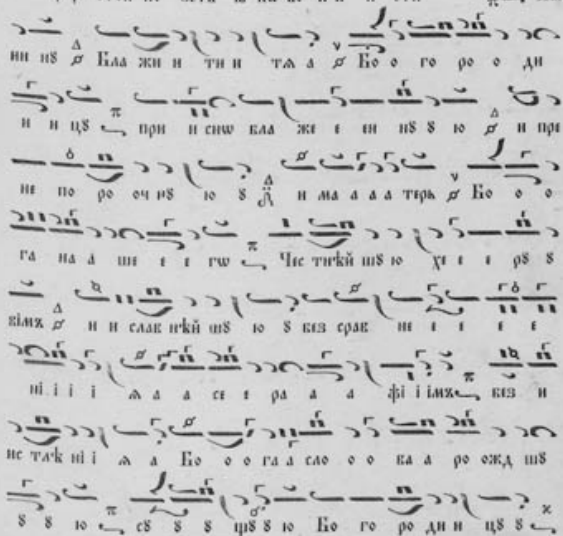 ни нꙋ Бла жи и ти и тѧ а Бо о го ро о ди
и и цꙋ при и снѡ бла же е ен нꙋ ꙋ ю и пре
не по ро оч нꙋ ю ꙋ и ма а а а терь Бо о о
га на а ше е е гѡ Чес тнѣй шꙋ ю хе е е рꙋ ꙋ
вімъ и и слав нѣй шꙋ ю ꙋ без срав не е е е е
ні і і і ѧ а а се е ра а а фі і імъ без и
ис тлѣ ні і ѧ а Бо о о га а сло о о ва а ро ожд шꙋ
ꙋ ꙋ ю сꙋ ꙋ ꙋ щꙋ ꙋ ю Бо го ро ди и цꙋ ꙋ